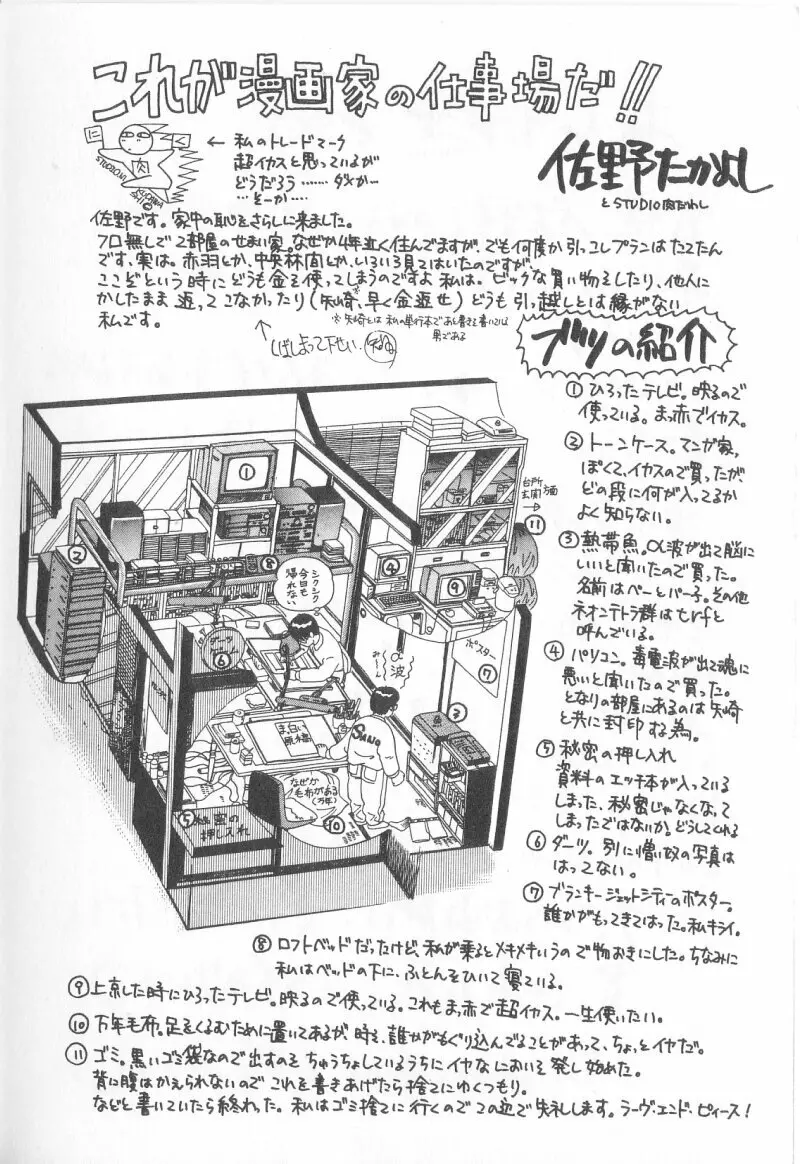 これが漫画家の仕事場だ!!
に
く
肉
← 私のトレードマーク
超イカスと思っているが
どうだろう……ダメか…
…そーか…
佐野たかよし
と STUDIO肉たわし
佐野です。家中の恥をさらしに来ました。
フロ無しで2部屋のせまい家。なぜか4年近く住んでますが、でも何度か引っこしプランはたてたん
です、実は。赤羽とか、中央林間とか、いろいろ見てはいたのですが、
ここぞという時にどうも金を使ってしまうのですよ私は。ビックな買い物をしたり、他人に
かしたまま返ってこなかったり(矢崎※、早く金返せ)どうも引っ越しとは縁がない
私です。
※矢崎とは私の単行本であと書きを書いている
男である
ブツの紹介
① ひろったテレビ。映るので
使っている。まっ赤でイカス。
② トーンケース。マンガ家,
ぽくて、イカスので買ったが、
どの段に何が入ってるか
よく知らない。
③ 熱帯魚。α波が出て脳に
いいと聞いたので買った。
名前はペーとパー子。その他
ネオンテトラ群はtrfと
呼んでいる。
④ パソコン。毒電波が出て魂に
悪いと聞いたので買った。
となりの部屋にあるのは矢崎
と共に封印する為。
⑤ 秘密の押し入れ
資料のエッチ本が入っている
しまった、秘密じゃなくなって
しまったではないか。どうしてくれる
⑥ ダーツ。別に憎い奴の写真は
はってない。
⑦ ブランキージェットシティーのポスター。
誰かがもってきてはった。私キライ。
①
台所
玄関方面
→
⑪
②
⑧
シクシク
今日も
帰れない
④
⑨
ダーツ
ゲーム
⑥
ポスター
⑦
α波
みーん
③
まっ白い
原稿
SANO
なぜか
毛布がある
(万年)
⑤秘密の
押し入れ
⑩
⑧ ロフトベッドだったけど、私が乗るとメキメキいうので物おきにした。ちなみに
私はベッドの下に、ふとんをひいて寝ている。
⑨ 上京した時にひろったテレビ。映るので使っている。これもまっ赤で超イカス。一生使いたい。
⑩ 万年毛布。足をくるむために置いてあるが、時々、誰かがもぐり込んでることがあって、ちょっとイヤだ。
⑪ ゴミ。黒いゴミ袋なので出すのをちゅうちょしているうちにイヤなにおいを発し始めた。
背に腹はかえられないので これを書きあげたら捨てにゆくつもり。
などと書いていたら終わった。私はゴミ捨てに行くのでこの辺で失礼します。ラーヴ・エンド・ピィース!